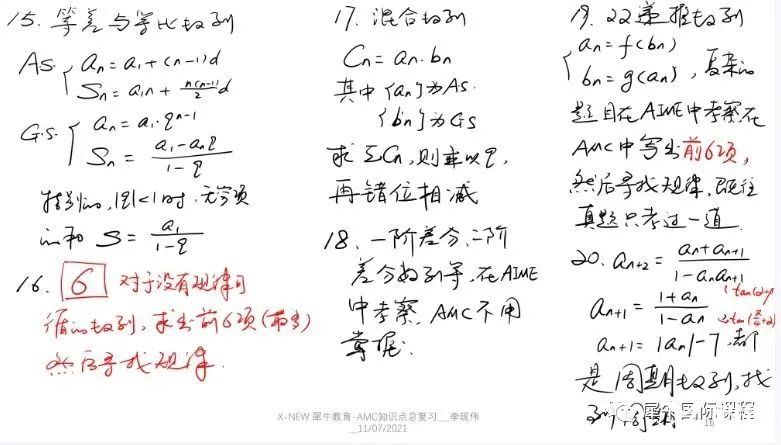 15. 等差与等比数列
A.S. { an = a1 + (n-1)d
Sn = a1n + n(n-1)/2 d
G.S. { an = a1·q^(n-1)
Sn = (a1 - anq)/(1-q)
特别的, |q|<1时, 无穷项
的和 S = a1/(1-q)
16. 6 对于没有规律可
循的数列, 求出前6项(最多)
然后寻找规律.
17. 混合数列
Cn = an·bn
其中{an}为A.S.
{bn}为G.S
求ΣCn, 则乘以q,
再错位相减
18. 一阶差分、二阶
差分数列等, 在AIME
中考察, AMC不用
掌握.
19. 双递推数列
{ an = f(bn)
bn = g(an) , 复杂的
题目在AIME中考察在
AMC中写出前6项,
然后寻找规律, 既往
真题只考过一道.
20. an+2 = (an + an+1)/(1 - an an+1)
an+1 = (1+an)/(1-an)
an+1 = |an| - 7, 都
是周期数列, 找
到周期
犀牛国际课程
X-NEW 犀牛教育-AMC知识点总复习__李现伟
_11/07/2021
16